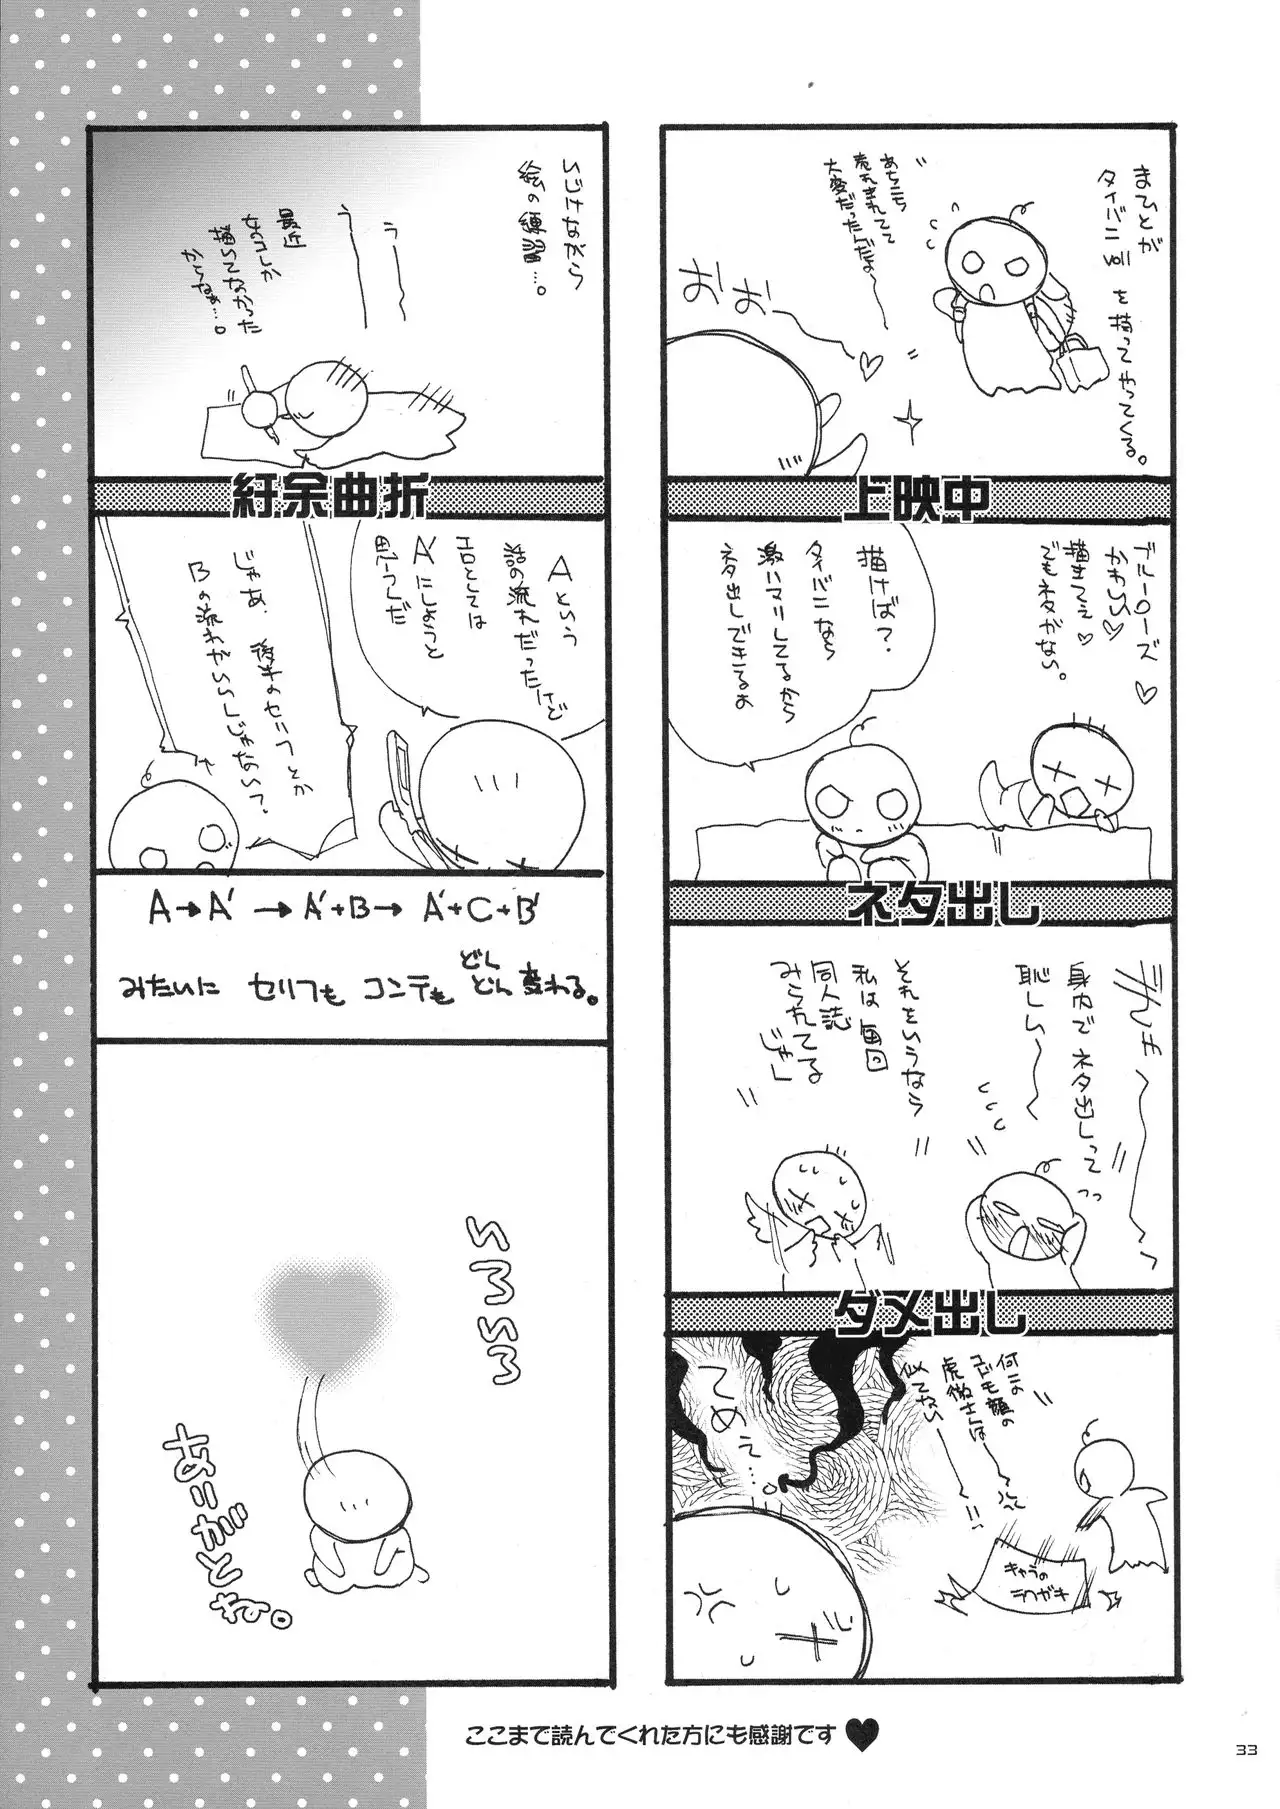 まひとが
タイバニ
vol1
を持ってやってくる。
あちこち
売れまれてて
大変だったんだよ
おおー
上映中
ブルーローズ
かわいい
描きてぇ
でもネタがない。
描けば?
タイバニなら
激ハマりしてるから
ネタ出しできるよ
ネタ出し
身内でネタ出しって
恥しい〜
それをいうなら
私は毎回
同人誌
みられてる
じゃし
ダメ出し
何この
コドモ顔の
虎徹さんは〜
似てない〜!!
キャラの
ラクガキ
てめぇ…。
いじけながら
絵の練習…。
う
う
最近
女のコしか
描いてなかった
からなぁ…。
紆余曲折
Aという
話の流れだったけど
エロとしては
A'にしようと
思ってんだ
じゃあ、後半のセリフとか
Bの流れがいいんじゃない?
A→A'→A'+B→A'+C+B'
みたいに セリフも コンテも どんどん変わる。
いろいろ
ありがとね。
ここまで読んでくれた方にも感謝です
33